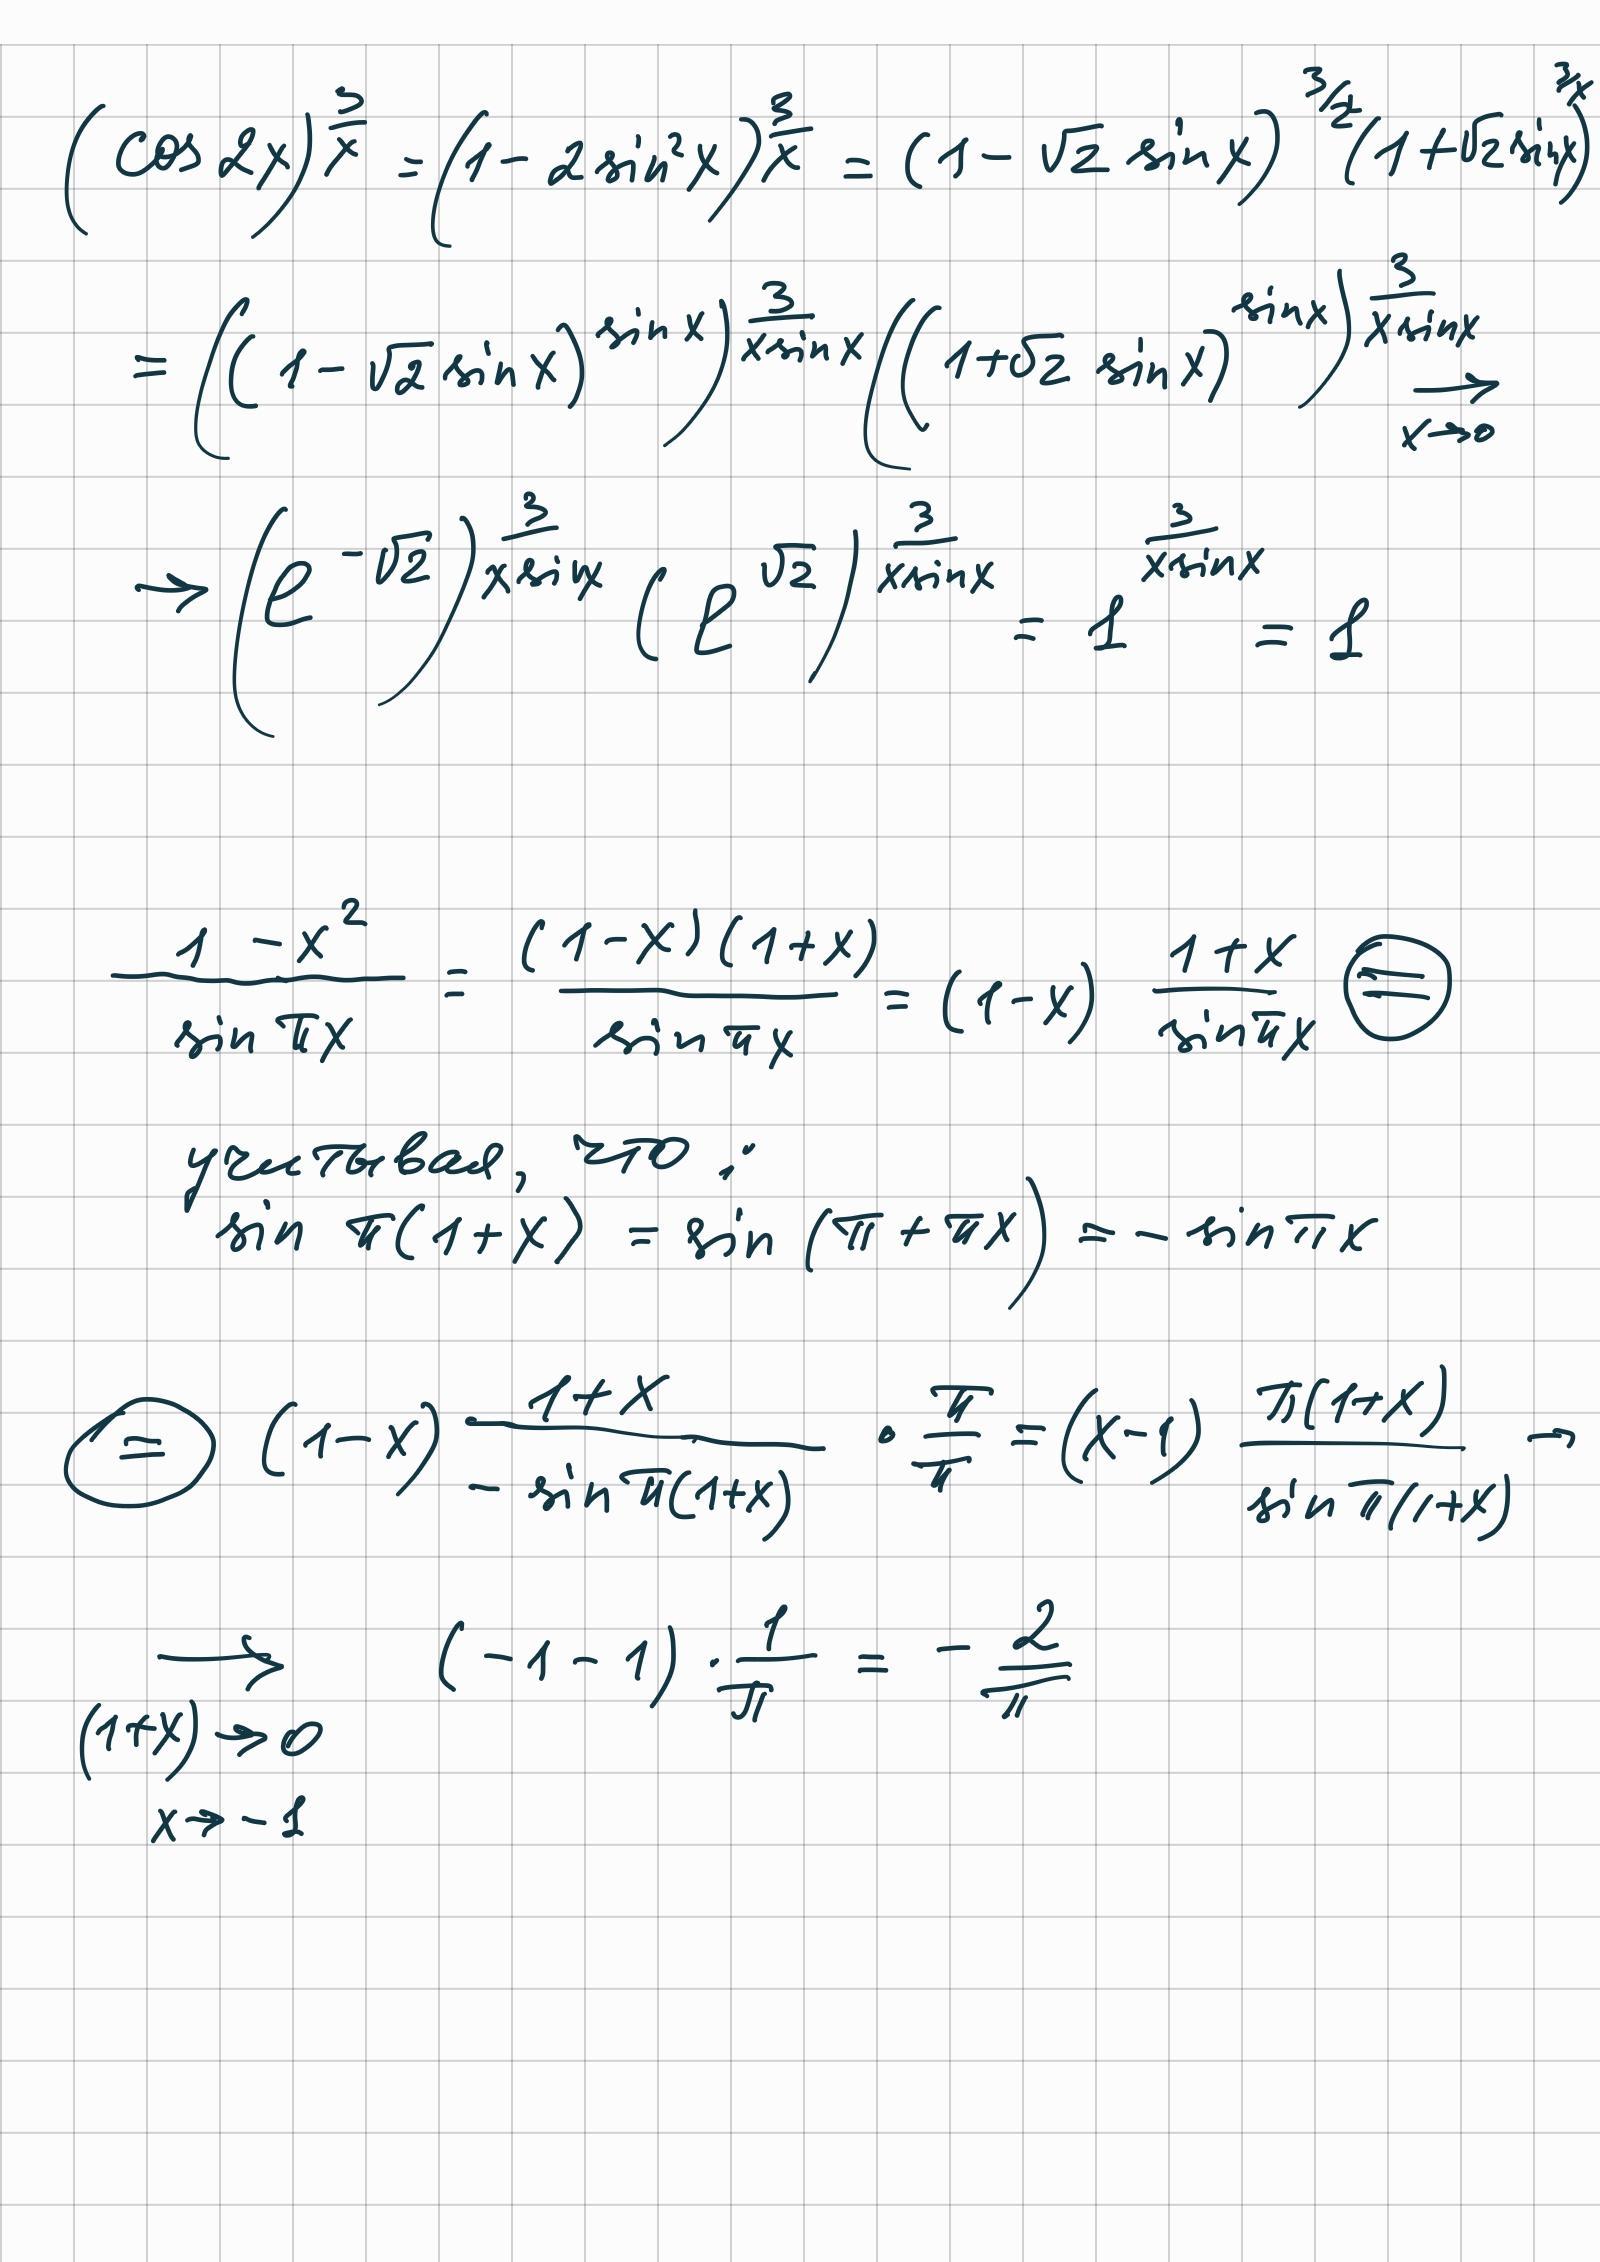 (cos 2x)^(3/x) = (1 - 2 sin²x)^(3/x) = (1 - √2 sin x)^(3/2) (1 + √2 sin x)^(3/x)
= ((1 - √2 sin x)^(sin x))^(3/(x sin x)) ((1 + √2 sin x)^(sin x))^(3/(x sin x)) → x→0
→ (e^(-√2))^(3/(x sin x)) (e^(√2))^(3/(x sin x)) = 1^(3/(x sin x)) = 1
(1 - x²)/(sin πx) = ((1-x)(1+x))/(sin πx) = (1-x) (1+x)/(sin πx) ⊜
учитывая, что :
sin π(1+x) = sin (π + πx) = - sin πx
⊜ (1-x) (1+x)/(- sin π(1+x)) · π/π = (x-1) (π(1+x))/(sin π(1+x)) →
→ (-1-1) · 1/π = - 2/π
(1+x) → 0
x → -1